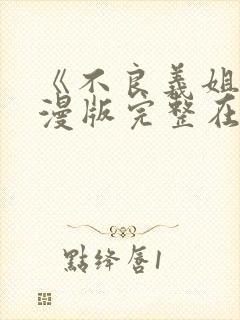 《不良義姐
漫版完整在
點绛唇1